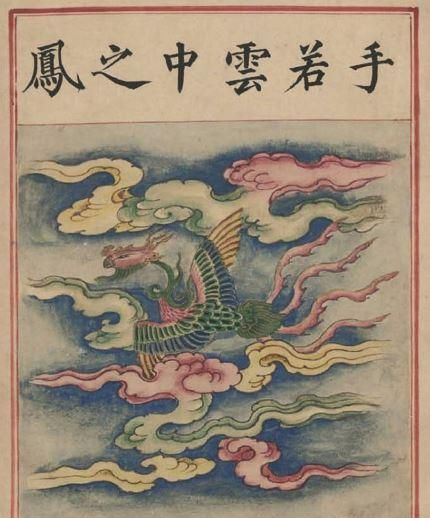 手若雲中之鳳